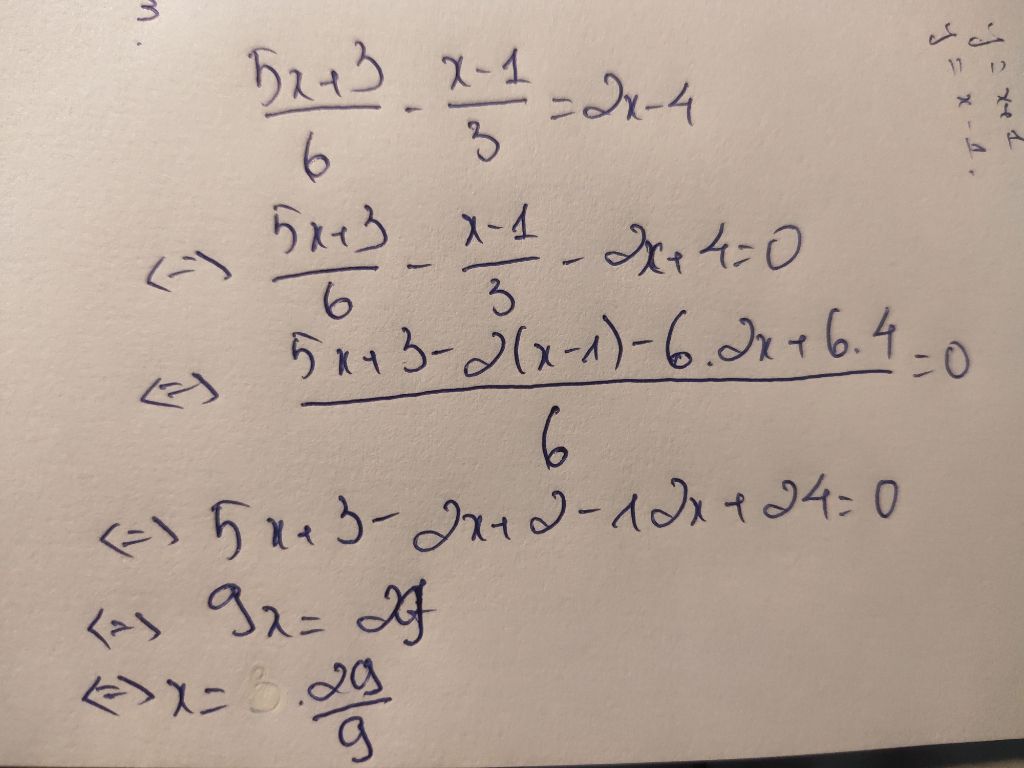 3
(5x+3)/6 - (x-1)/3 = 2x-4
<=> (5x+3)/6 - (x-1)/3 - 2x+4=0
<=> (5x+3-2(x-1)-6.2x+6.4)/6 =0
<=> 5x+3-2x+2-12x+24=0
<=> 9x= 29
<=> x= 29/9